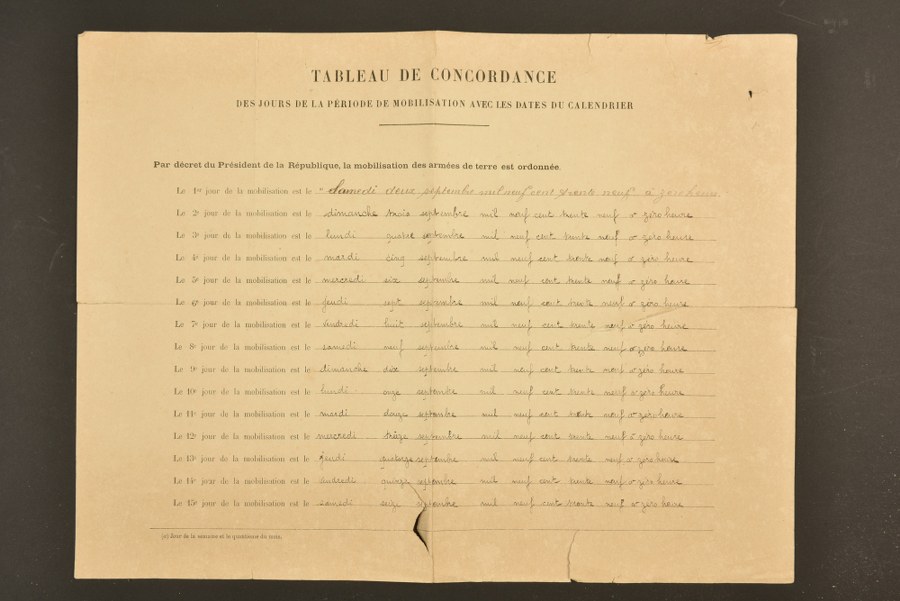 TABLEAU DE CONCORDANCE
DES JOURS DE LA PÉRIODE DE MOBILISATION AVEC LES DATES DU CALENDRIER
Par décret du Président de la République, la mobilisation des armées de terre est ordonnée.
Le 1er jour de la mobilisation est le samedi deux septembre mil neuf cent trente neuf à zéro heure
Le 2e jour de la mobilisation est le dimanche trois septembre mil neuf cent trente neuf à zéro heure
Le 3e jour de la mobilisation est le lundi quatre septembre mil neuf cent trente neuf à zéro heure
Le 4e jour de la mobilisation est le mardi cinq septembre mil neuf cent trente neuf à zéro heure
Le 5e jour de la mobilisation est le mercredi six septembre mil neuf cent trente neuf à zéro heure
Le 6e jour de la mobilisation est le jeudi sept septembre mil neuf cent trente neuf à zéro heure
Le 7e jour de la mobilisation est le vendredi huit septembre mil neuf cent trente neuf à zéro heure
Le 8e jour de la mobilisation est le samedi neuf septembre mil neuf cent trente neuf à zéro heure
Le 9e jour de la mobilisation est le dimanche dix septembre mil neuf cent trente neuf à zéro heure
Le 10e jour de la mobilisation est le lundi onze septembre mil neuf cent trente neuf à zéro heure
Le 11e jour de la mobilisation est le mardi douze septembre mil neuf cent trente neuf à zéro heure
Le 12e jour de la mobilisation est le mercredi treize septembre mil neuf cent trente neuf à zéro heure
Le 13e jour de la mobilisation est le jeudi quatorze septembre mil neuf cent trente neuf à zéro heure
Le 14e jour de la mobilisation est le vendredi quinze septembre mil neuf cent trente neuf à zéro heure
Le 15e jour de la mobilisation est le samedi seize septembre mil neuf cent trente neuf à zéro heure
(a) Jour de la semaine et le quantième du mois.